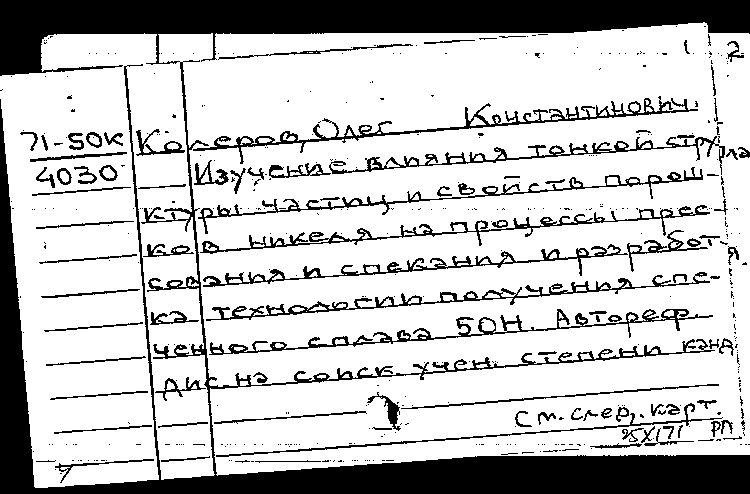 1 2
71-50к Колеров, Олег Константинович.
4030 Изучение влияния тонкой стру
ктуры частиц и свойств порош-
ков никеля на процессы прес-
сования и спекания и разработ-
ка технологии получения спе-
ченного сплава 50Н. Автореф.
дис. на соиск. учен. степени канд.
См. след. карт.
25X171 РП